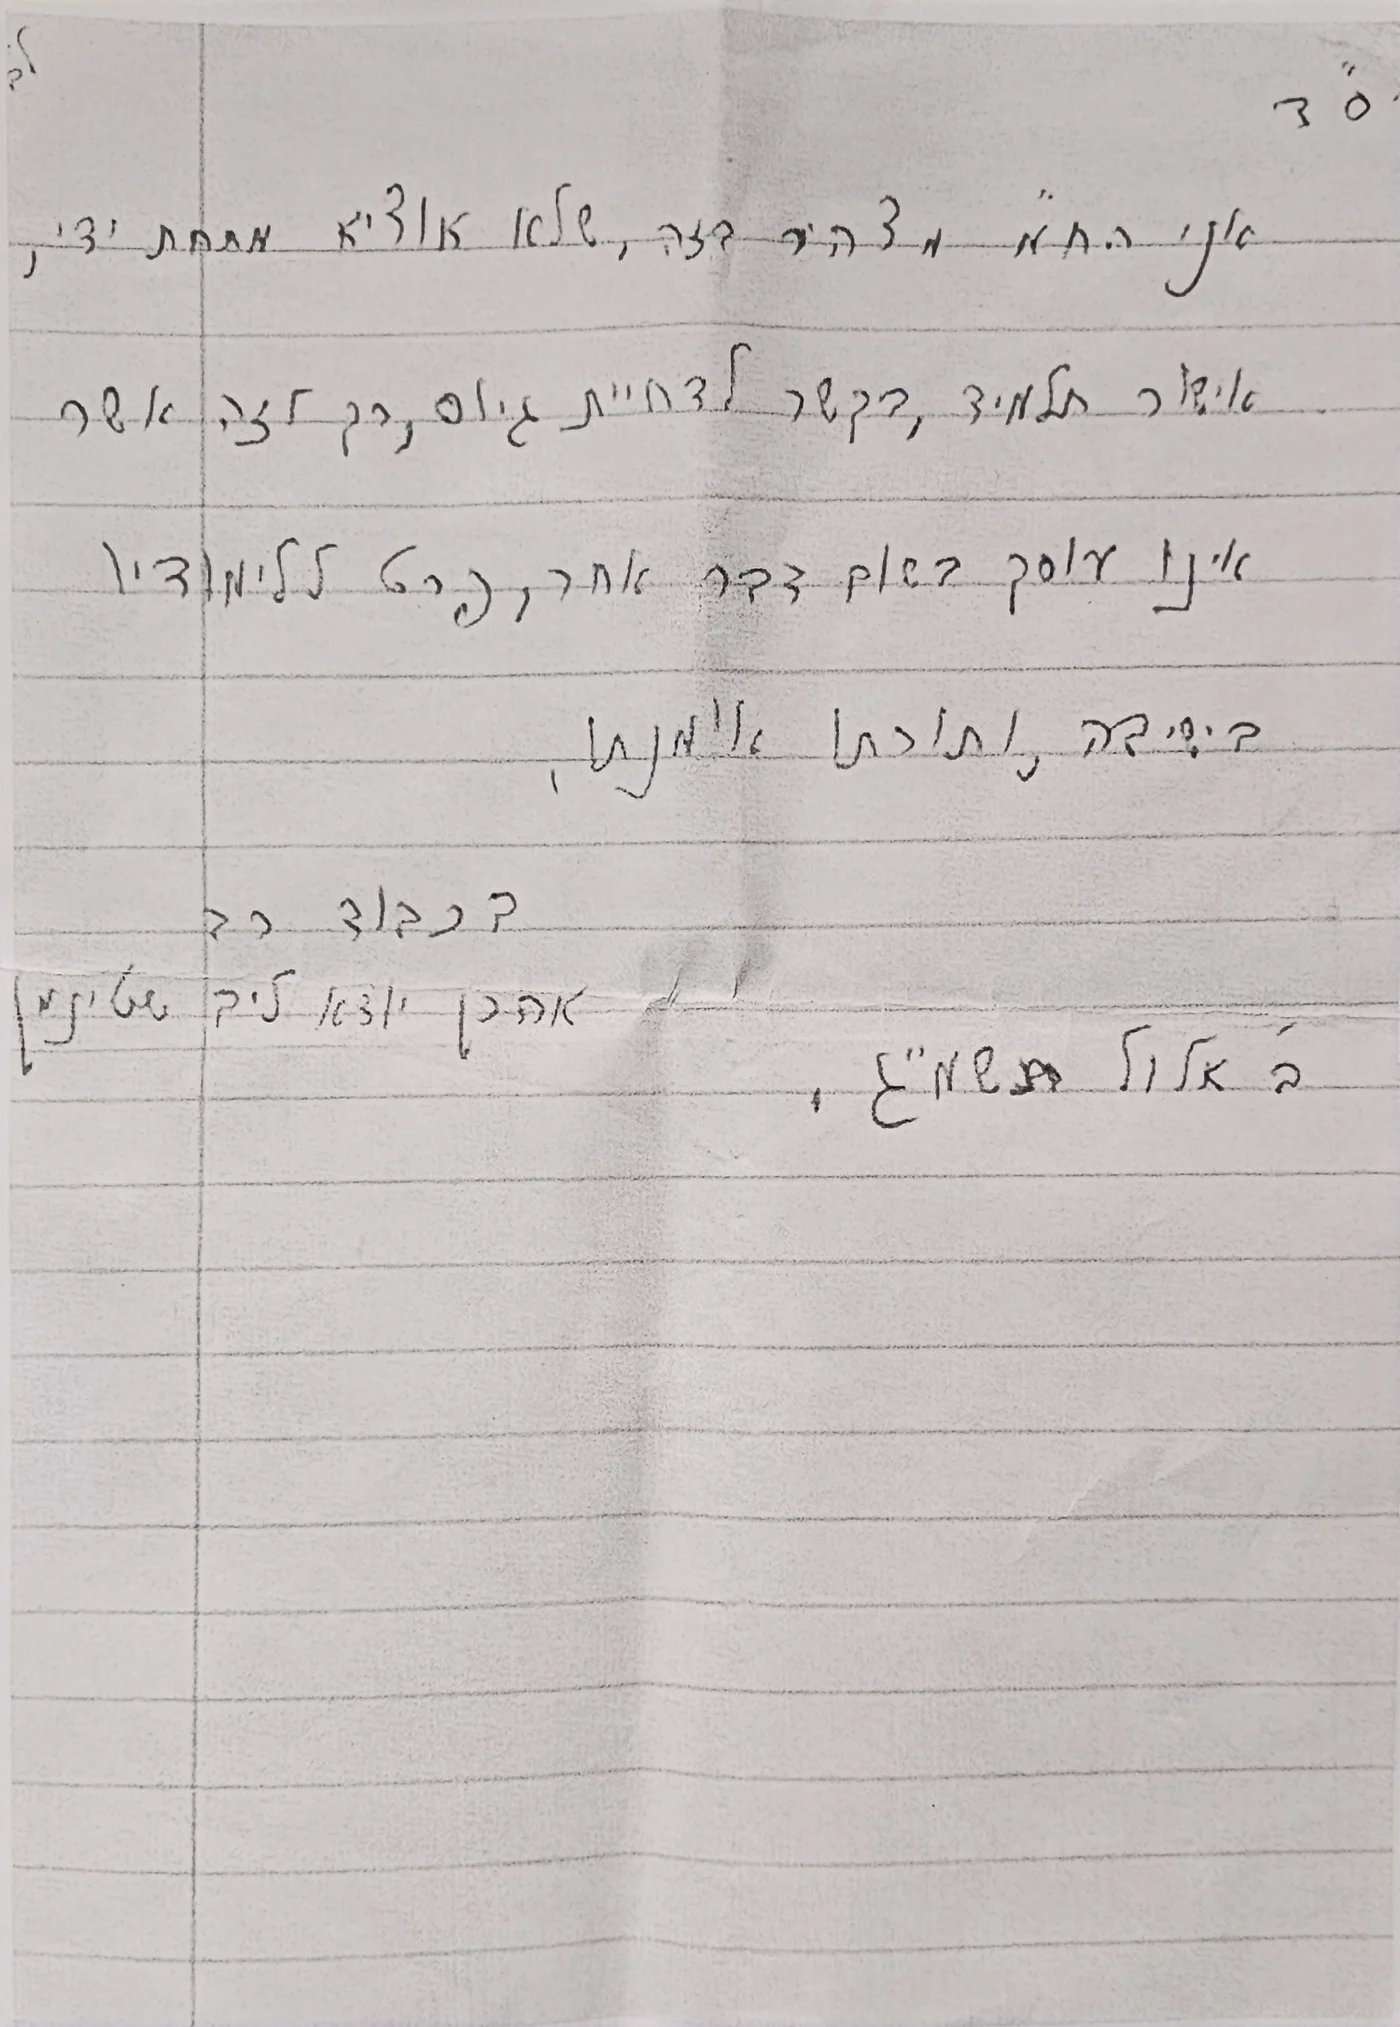 ס"ד
אני הח"מ מצהיר בזה, שלא אוציא מתחת ידי,
אישור תלמיד, בקשר לדחיית גיוס, רק לזה אשר
איננו עוסק בשום דבר אחר, פרט ללימודיו
בישיבה, ותורתו אומנתו.
בכבוד רב
אהרן יודא ליב שטינמן
ב' אלול תשמ"ג,